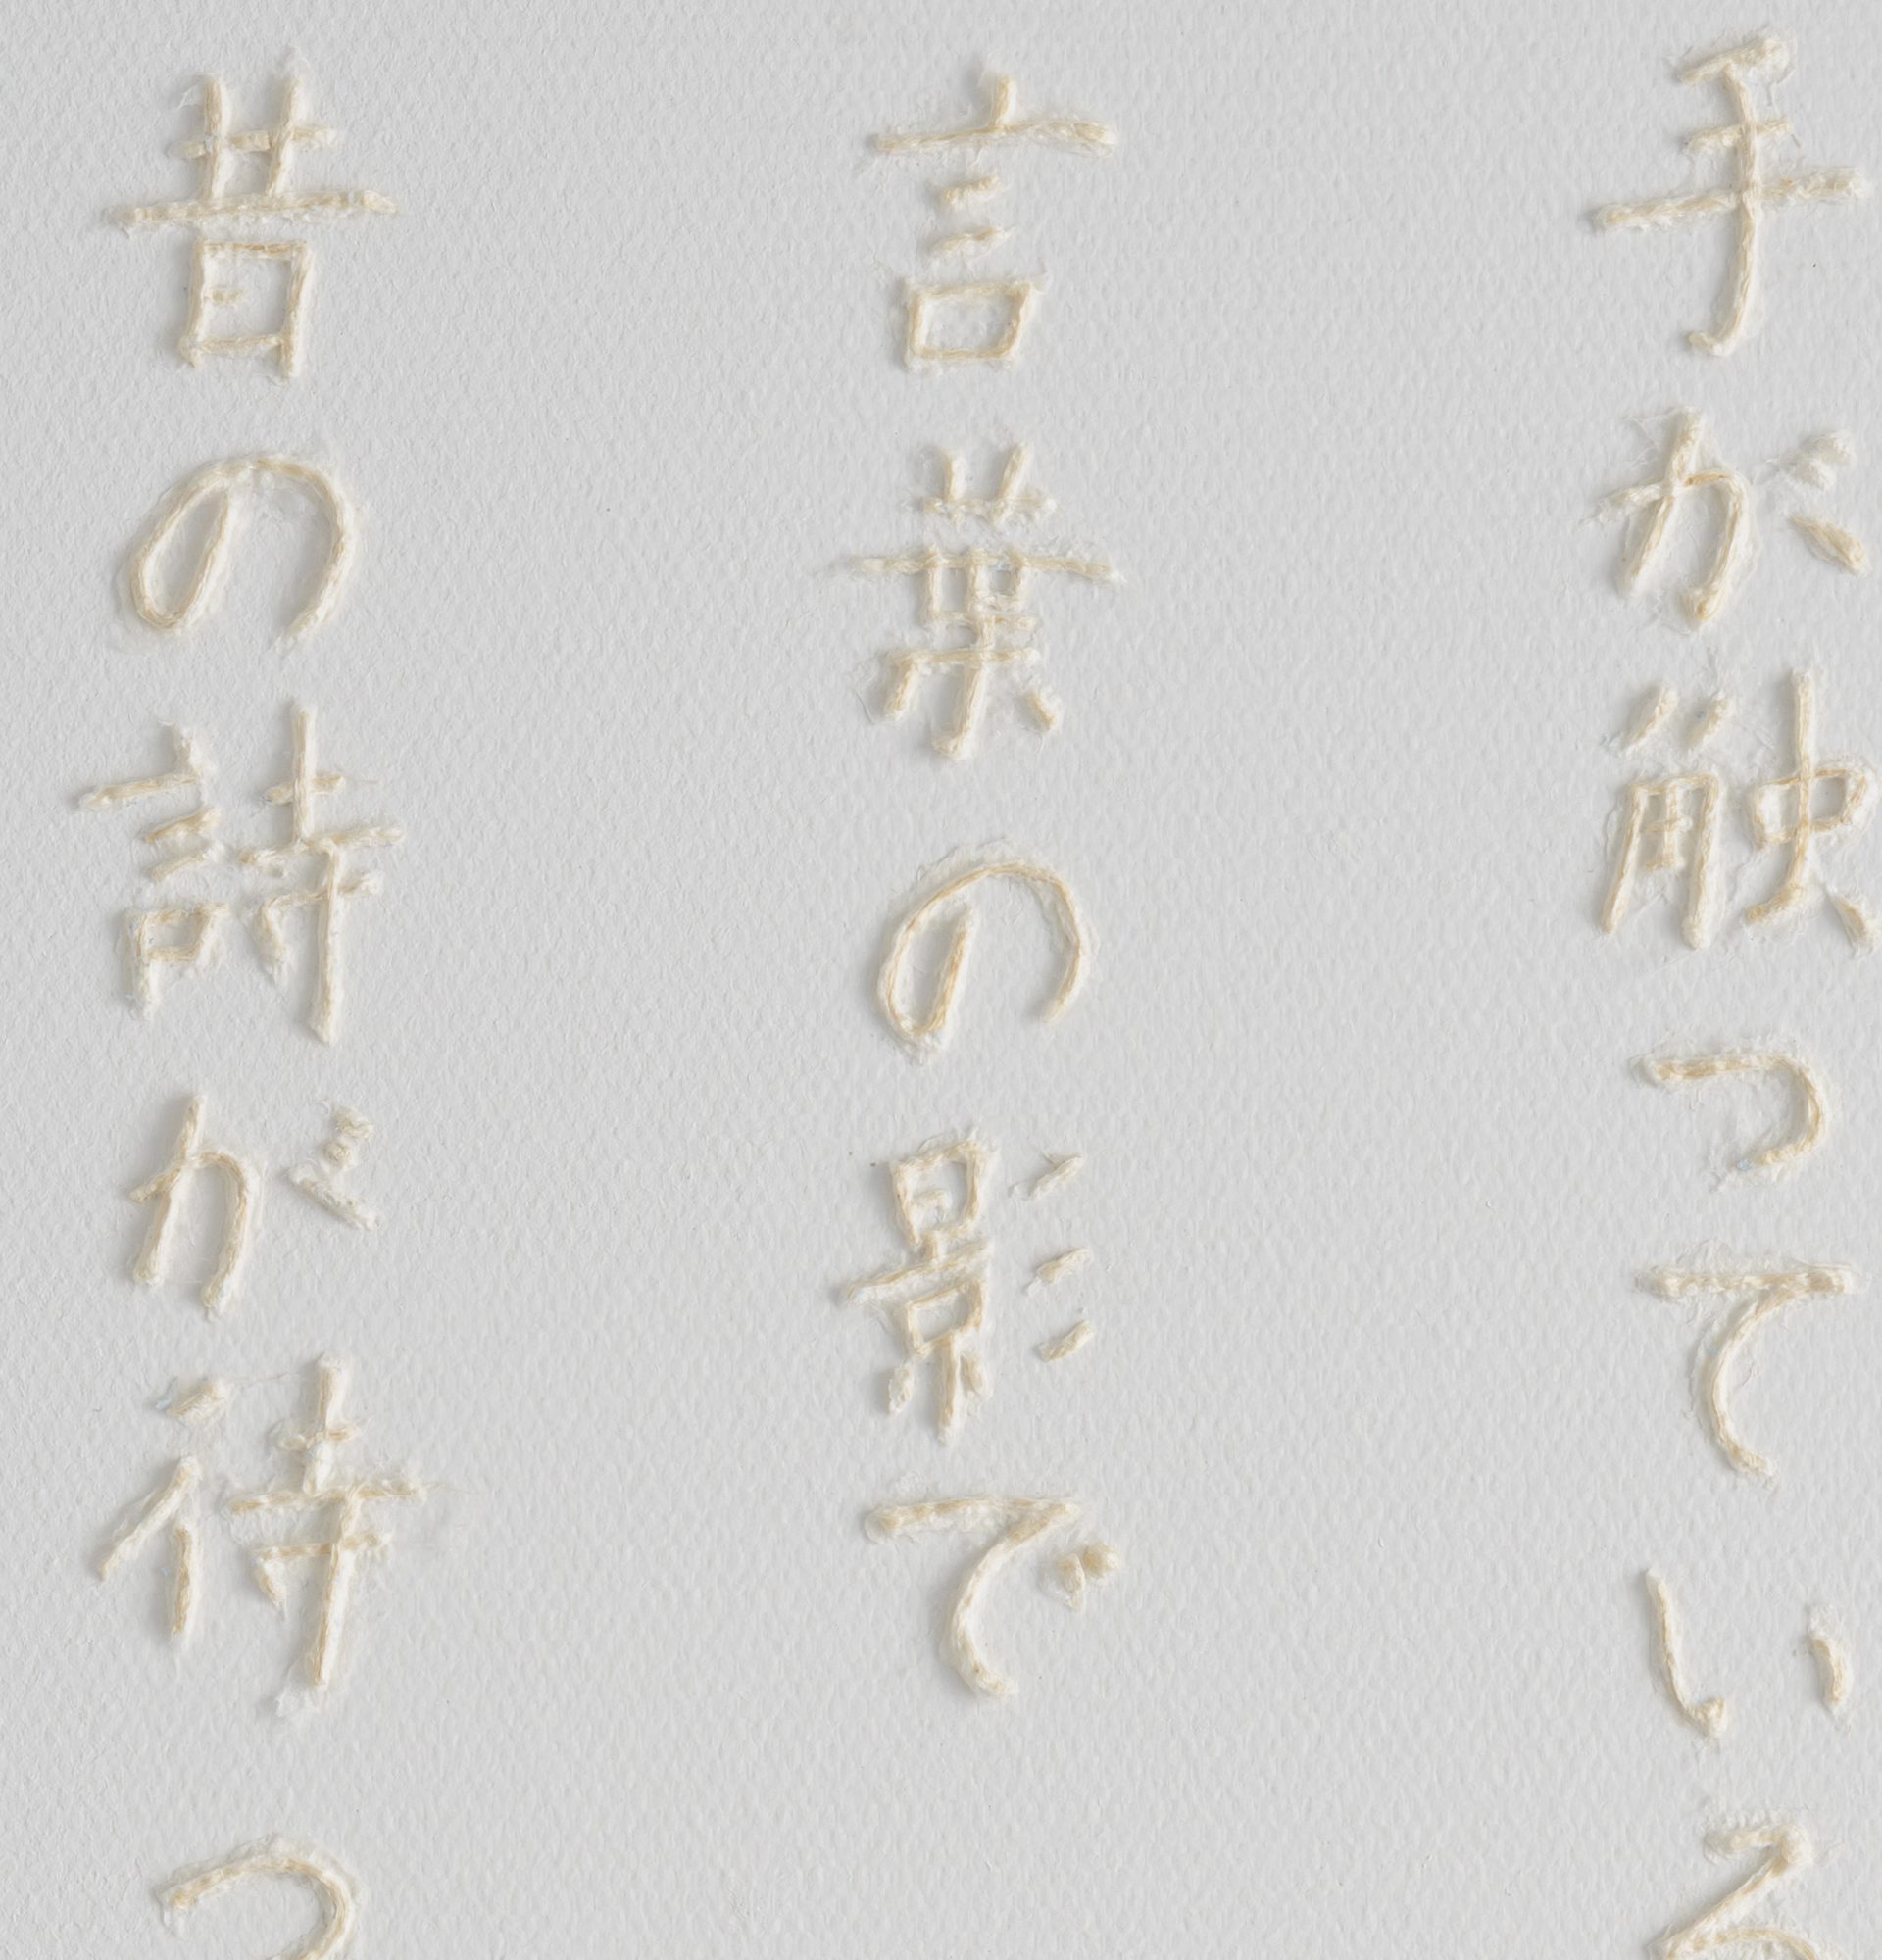 手が触っている
言葉の影で
昔の詩が待つ